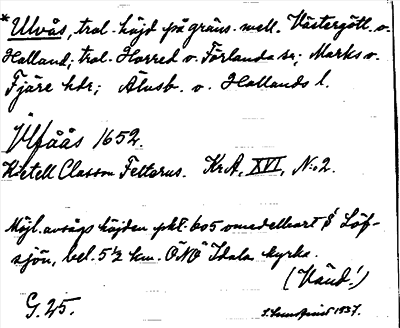 * Ulvås, trol. höjd på gräns. mell. Västergötl. o.
Halland, trol. Horred o. Förlanda sn; Marks o.
Fjäre hdr; Älvsb. o. Hallands l.
Ulfåås 1652.
Kietell Classon Felterus. Kr.A, XVI, N:o 2.
Möjl. avsågs höjden pkt. 605 omedelbart S Löf-
sjön, bel. 5 1/2 km. ÖNÖ Idala kyrka.
(Vänd!)
G. 25. 1937.